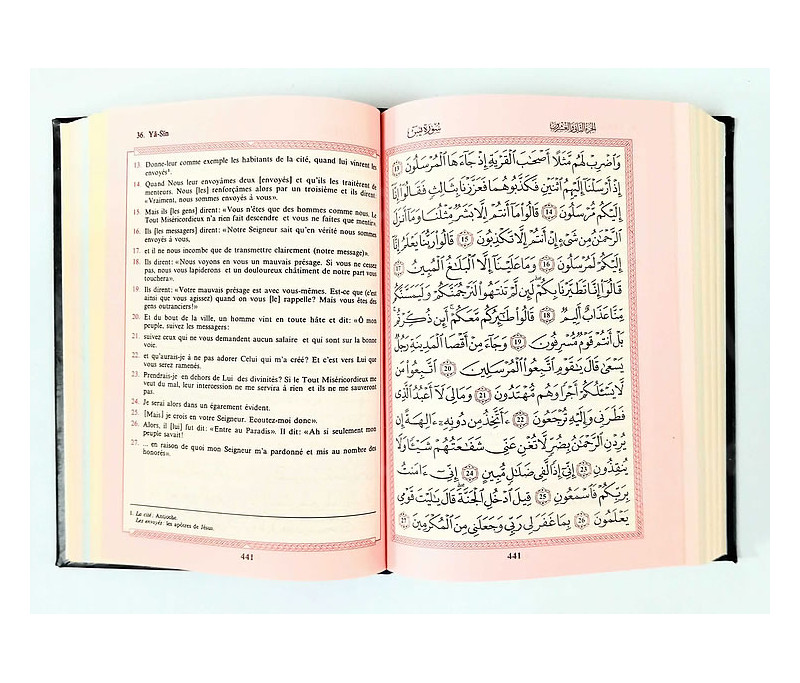 36. Yâ-Sîn
13. Donne-leur comme exemple les habitants de la cité, quand lui vinrent les
envoyés¹.
14. Quand Nous leur envoyâmes deux [envoyés] et qu'ils les traitèrent de
menteurs. Nous [les] renforçâmes alors par un troisième et ils dirent:
«Vraiment, nous sommes envoyés à vous».
15. Mais ils [les gens] dirent: «Vous n'êtes que des hommes comme nous. Le
Tout Miséricordieux n'a rien fait descendre et vous ne faites que mentir».
16. Ils [les messagers] dirent: «Notre Seigneur sait qu'en vérité nous sommes
envoyés à vous,
17. et il ne nous incombe que de transmettre clairement (notre message)».
18. Ils dirent: «Nous voyons en vous un mauvais présage. Si vous ne cessez
pas, nous vous lapiderons et un douloureux châtiment de notre part vous
touchera».
19. Ils dirent: «Votre mauvais présage est avec vous-mêmes. Est-ce que (c'est
ainsi que vous agissez) quand on vous [le] rappelle? Mais vous êtes des
gens outranciers!»
20. Et du bout de la ville, un homme vint en toute hâte et dit: «Ô mon
peuple, suivez les messagers:
21. suivez ceux qui ne vous demandent aucun salaire et qui sont sur la bonne
voie.
22. et qu'aurais-je à ne pas adorer Celui qui m'a créé? Et c'est vers Lui que
vous serez ramenés.
23. Prendrais-je en dehors de Lui des divinités? Si le Tout Miséricordieux me
veut du mal, leur intercession ne me servira à rien et ils ne me sauveront
pas.
24. Je serai alors dans un égarement évident.
25. [Mais] je crois en votre Seigneur. Ecoutez-moi donc».
26. Alors, il [lui] fut dit: «Entre au Paradis». Il dit: «Ah si seulement mon
peuple savait!
27. ... en raison de quoi mon Seigneur m'a pardonné et mis au nombre des
honorés».
1. La cité: Antioche.
Les envoyés: les apôtres de Jésus.
441
الجزء الثاني والعشرون
سورة يس
وَاضْرِبْ لَهُم مَّثَلًا أَصْحَابَ الْقَرْيَةِ إِذْ جَاءَهَا الْمُرْسَلُونَ ١٣
إِذْ أَرْسَلْنَا إِلَيْهِمُ اثْنَيْنِ فَكَذَّبُوهُمَا فَعَزَّزْنَا بِثَالِثٍ فَقَالُوا إِنَّا
إِلَيْكُم مُّرْسَلُونَ ١٤ قَالُوا مَا أَنتُمْ إِلَّا بَشَرٌ مِّثْلُنَا وَمَا أَنزَلَ
الرَّحْمَٰنُ مِن شَيْءٍ إِنْ أَنتُمْ إِلَّا تَكْذِبُونَ ١٥ قَالُوا رَبُّنَا يَعْلَمُ إِنَّا
إِلَيْكُمْ لَمُرْسَلُونَ ١٦ وَمَا عَلَيْنَا إِلَّا الْبَلَاغُ الْمُبِينُ ١٧
قَالُوا إِنَّا تَطَيَّرْنَا بِكُمْ لَئِن لَّمْ تَنتَهُوا لَنَرْجُمَنَّكُمْ وَلَيَمَسَّنَّكُم
مِّنَّا عَذَابٌ أَلِيمٌ ١٨ قَالُوا طَائِرُكُم مَّعَكُمْ أَئِن ذُكِّرْتُم
بَلْ أَنتُمْ قَوْمٌ مُّسْرِفُونَ ١٩ وَجَاءَ مِنْ أَقْصَا الْمَدِينَةِ رَجُلٌ
يَسْعَىٰ قَالَ يَا قَوْمِ اتَّبِعُوا الْمُرْسَلِينَ ٢٠ اتَّبِعُوا مَن
لَّا يَسْأَلُكُمْ أَجْرًا وَهُم مُّهْتَدُونَ ٢١ وَمَا لِيَ لَا أَعْبُدُ الَّذِي
فَطَرَنِي وَإِلَيْهِ تُرْجَعُونَ ٢٢ ءَأَتَّخِذُ مِن دُونِهِ ءَالِهَةً إِن
يُرِدْنِ الرَّحْمَٰنُ بِضُرٍّ لَّا تُغْنِ عَنِّي شَفَاعَتُهُمْ شَيْئًا وَلَا
يُنقِذُونِ ٢٣ إِنِّي إِذًا لَّفِي ضَلَالٍ مُّبِينٍ ٢٤ إِنِّي ءَامَنتُ
بِرَبِّكُمْ فَاسْمَعُونِ ٢٥ قِيلَ ادْخُلِ الْجَنَّةَ قَالَ يَا لَيْتَ قَوْمِي
يَعْلَمُونَ ٢٦ بِمَا غَفَرَ لِي رَبِّي وَجَعَلَنِي مِنَ الْمُكْرَمِينَ ٢٧
441